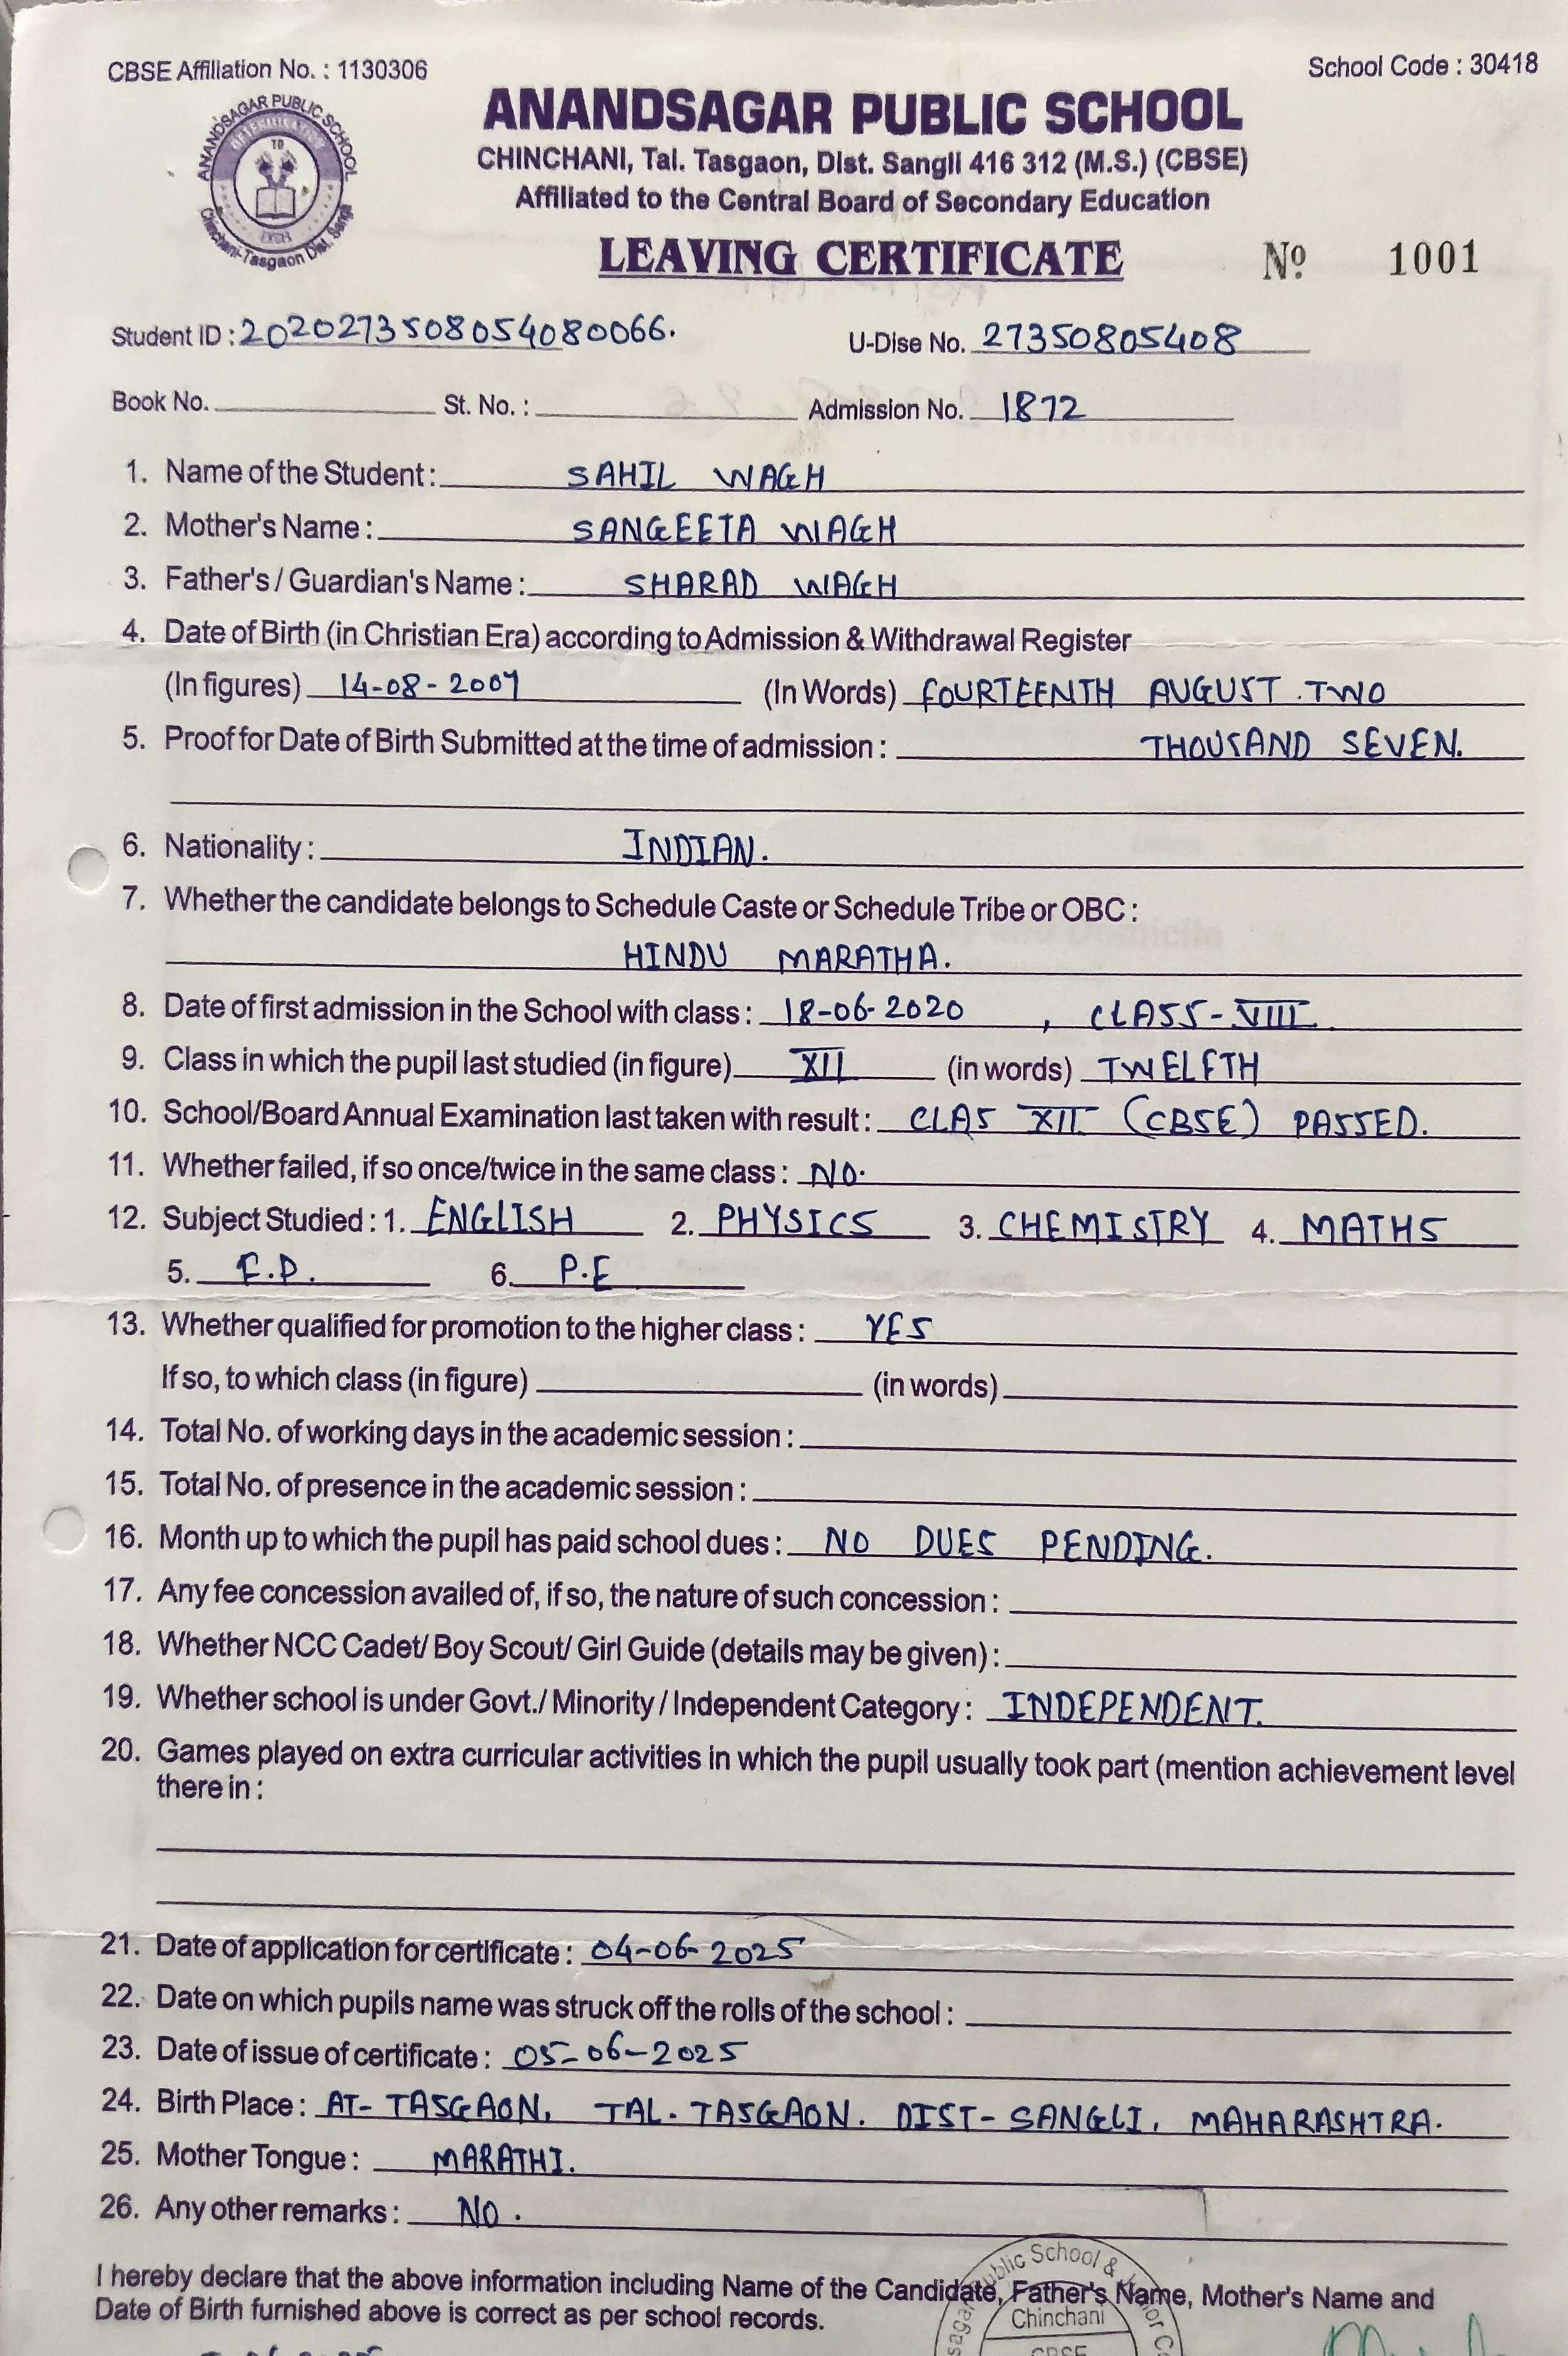 CBSE Affiliation No. : 1130306
School Code : 30418
ANANDSAGAR PUBLIC SCHOOL
DETERMINATION
TO
EXCEL
Chinchani-Tasgaon Dist. Sangli
ANANDSAGAR PUBLIC SCHOOL
CHINCHANI, Tal. Tasgaon, Dist. Sangli 416 312 (M.S.) (CBSE)
Affiliated to the Central Board of Secondary Education
LEAVING CERTIFICATE № 1001
Student ID : 2020273508054080066. U-Dise No. 27350805408
Book No. St. No. : Admission No. 1872
1. Name of the Student : SAHIL WAGH
2. Mother's Name : SANGEETA WAGH
3. Father's / Guardian's Name : SHARAD WAGH
4. Date of Birth (in Christian Era) according to Admission & Withdrawal Register
(In figures) 14-08-2007 (In Words) FOURTEENTH AUGUST TWO
5. Proof for Date of Birth Submitted at the time of admission : THOUSAND SEVEN.
6. Nationality : INDIAN.
7. Whether the candidate belongs to Schedule Caste or Schedule Tribe or OBC :
HINDU MARATHA.
8. Date of first admission in the School with class : 18-06-2020 , CLASS-VIII
9. Class in which the pupil last studied (in figure) XII (in words) TWELFTH
10. School/Board Annual Examination last taken with result : CLAS XII (CBSE) PASSED.
11. Whether failed, if so once/twice in the same class : NO.
12. Subject Studied : 1. ENGLISH 2. PHYSICS 3. CHEMISTRY 4. MATHS
5. E.D. 6. P.E
13. Whether qualified for promotion to the higher class : YES
If so, to which class (in figure) (in words)
14. Total No. of working days in the academic session :
15. Total No. of presence in the academic session :
16. Month up to which the pupil has paid school dues : NO DUES PENDING.
17. Any fee concession availed of, if so, the nature of such concession :
18. Whether NCC Cadet/ Boy Scout/ Girl Guide (details may be given) :
19. Whether school is under Govt./ Minority / Independent Category : INDEPENDENT.
20. Games played on extra curricular activities in which the pupil usually took part (mention achievement level
there in :
21. Date of application for certificate : 04-06-2025
22. Date on which pupils name was struck off the rolls of the school :
23. Date of issue of certificate : 05-06-2025
24. Birth Place : AT- TASGAON, TAL. TASGAON. DIST- SANGLI, MAHARASHTRA.
25. Mother Tongue : MARATHI.
26. Any other remarks : NO.
I hereby declare that the above information including Name of the Candidate, Father's Name, Mother's Name and
Date of Birth furnished above is correct as per school records.
Public School &
Chinchani
CBSE